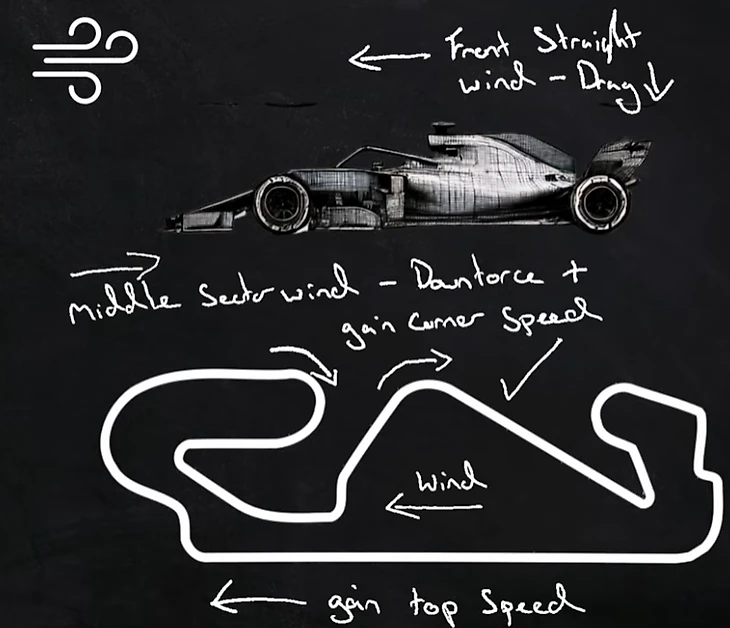 Front Straight
wind - Drag ↓
Middle Sector wind - Downforce +
gain corner Speed
Wind
gain top Speed